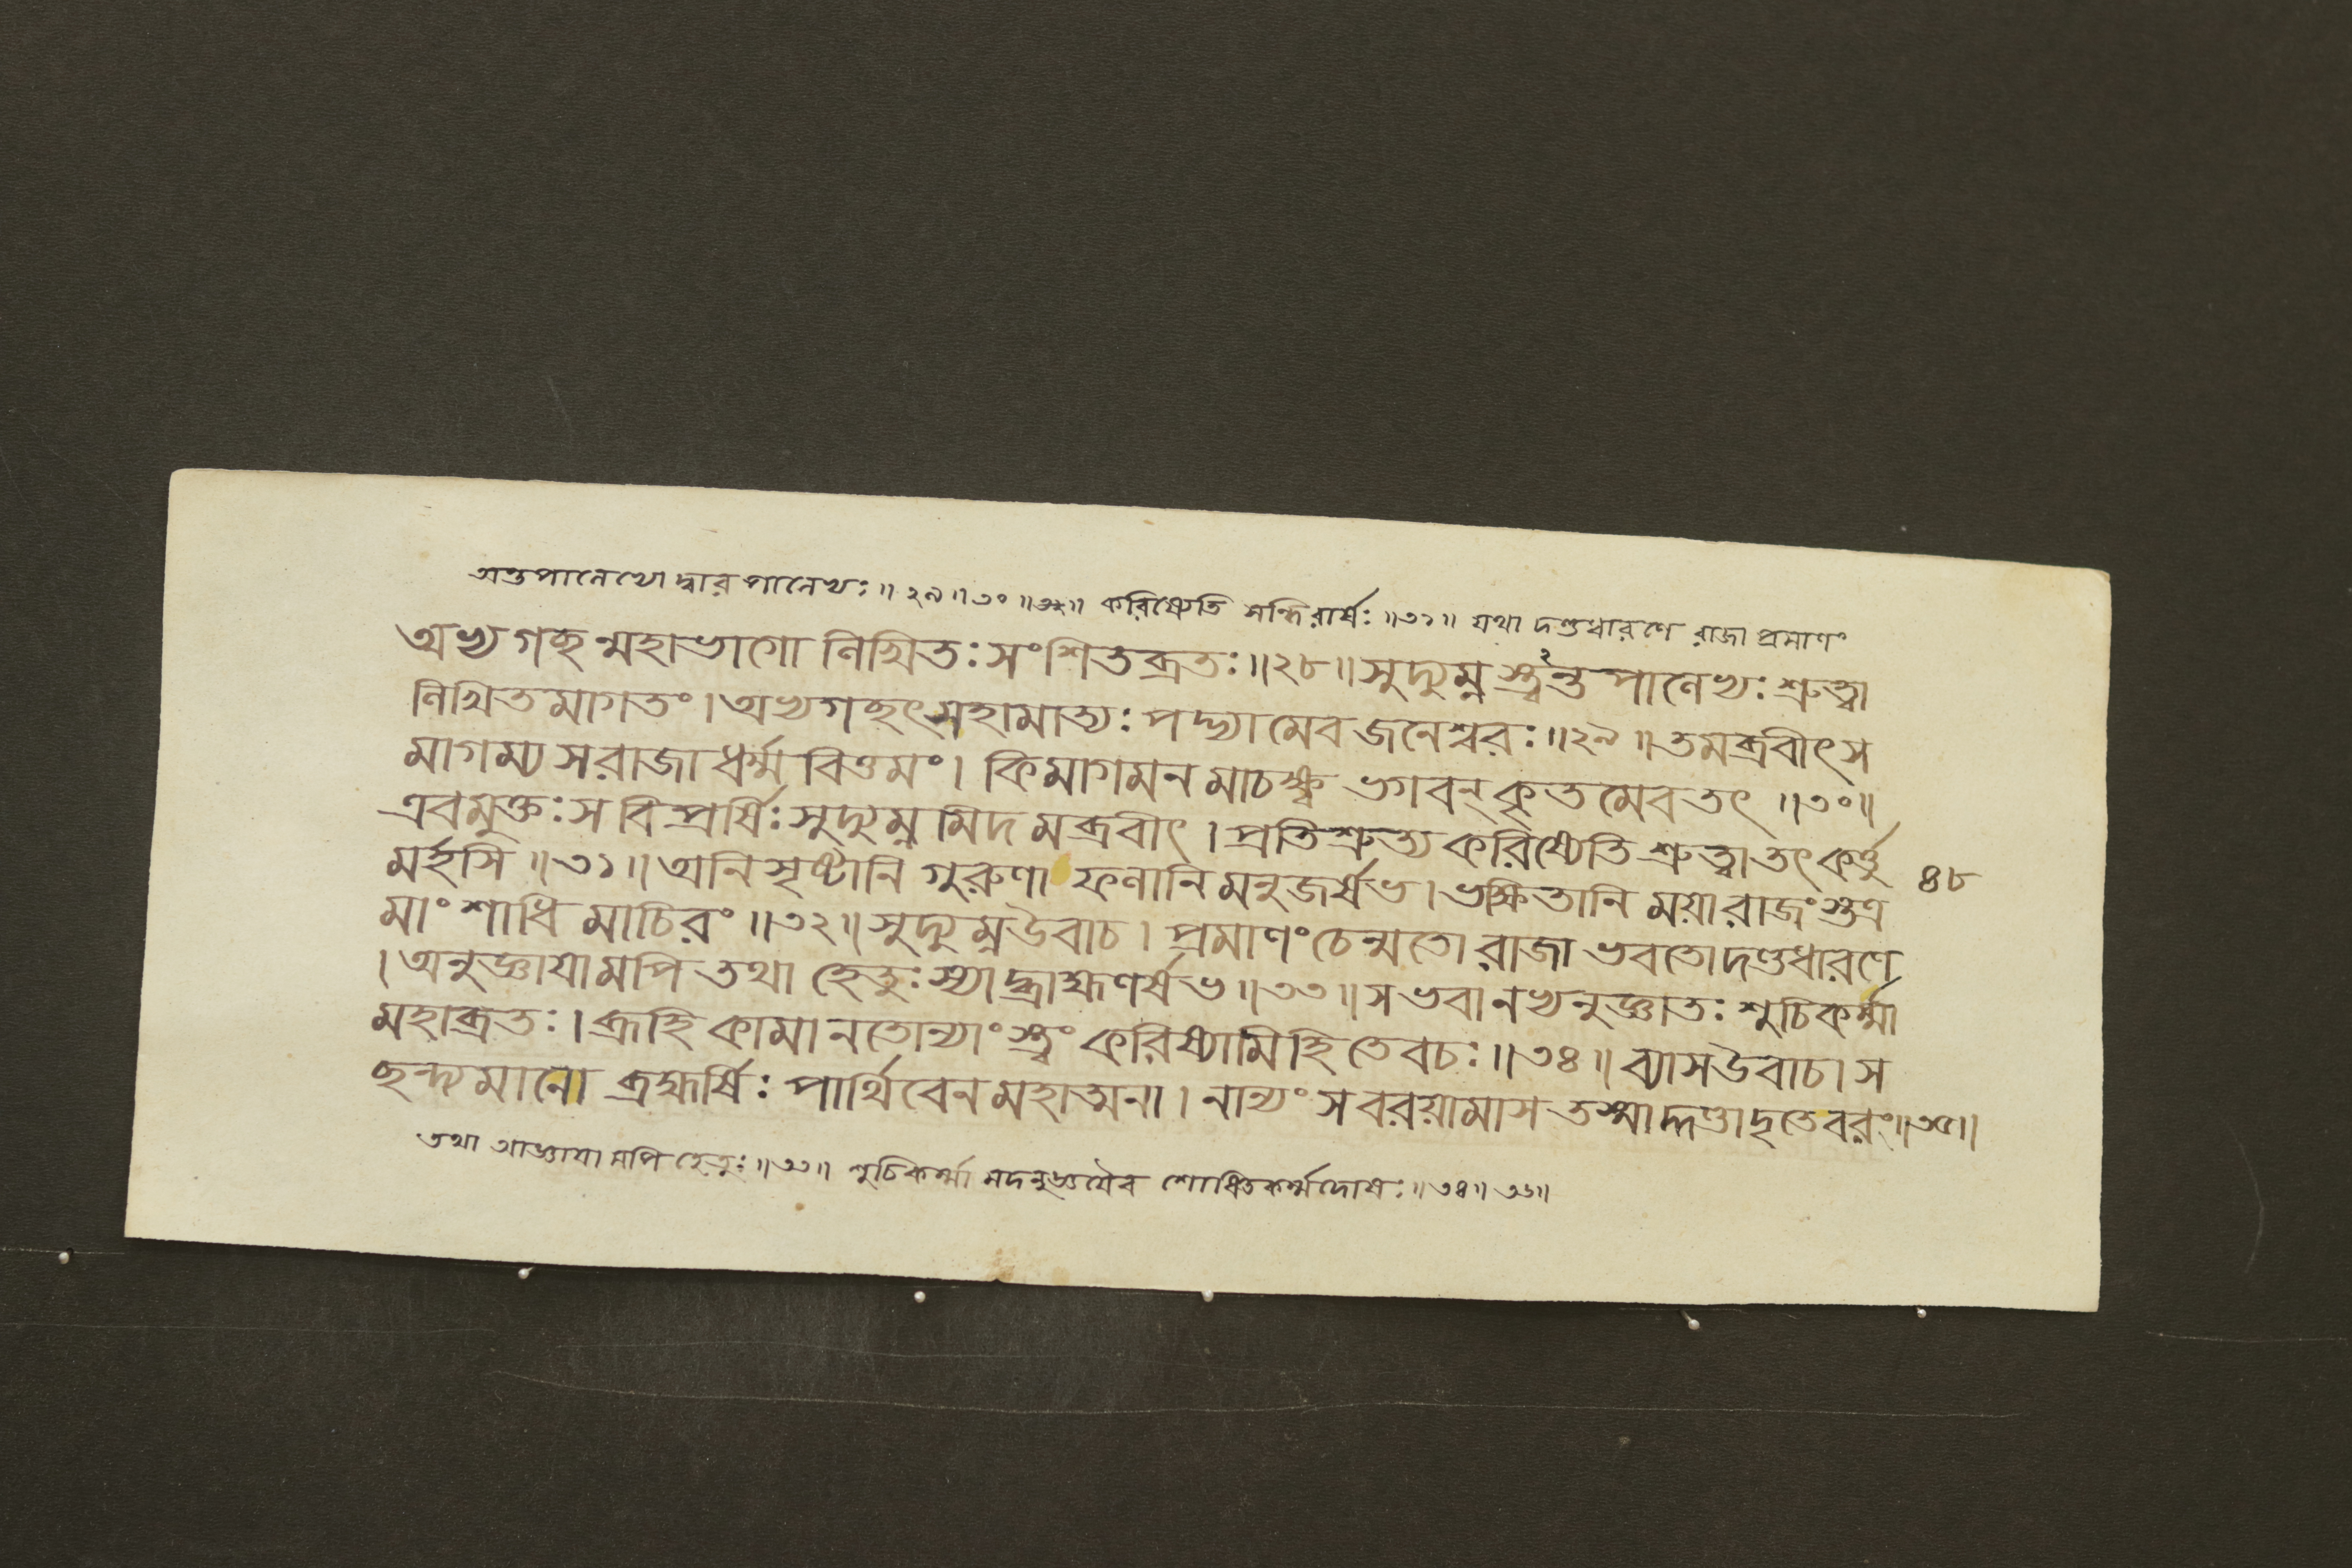 অন্তপানেথো দ্বারপানেখঃ॥২৯॥৩০॥ করিষ্যেতি সন্ধিরার্ষঃ॥৩১॥ যথা দণ্ডধারণে রাজা প্রমাণং
অভ্যগচ্ছন্মহাভাগো লিখিতঃ সংশিতব্রতঃ॥২৮॥সুদ্যুম্নস্ত্বন্তপালেভ্যঃ শ্রুত্বা
লিখিতমাগতং।অভ্যগচ্ছৎসহামাত্যঃ পদ্ভ্যামেব জনেশ্বরঃ॥২৯॥তমব্রবীৎস
মাগম্য স রাজা ধর্ম্মবিত্তমং। কিমাগমনমাচক্ষ্ব ভগবন্ কৃতমেব তৎ ॥৩০॥
এবমুক্তঃ স বিপ্রর্ষিঃ সুদ্যুম্নমিদমব্রবীৎ। প্রতিশ্রুত্য করিষ্যেতি শ্রুত্বা তৎ কর্ত্তু
মর্হসি ॥৩১॥ অনিসৃষ্টানি গুরুণা ফলানি মনুজর্ষভ। ভক্ষিতানি ময়া রাজংস্তত্র
৪৮
মাং শাধি মাচিরং ॥৩২॥ সুদ্যুম্নউবাচ। প্রমাণং চেন্মতো রাজা ভবতো দণ্ডধারণে
।অনুজ্ঞায়ামপি তথা হেতুঃ স্যাদ্ব্রাহ্মণর্ষভ॥৩৩॥ স ভবানভ্যনুজ্ঞাতঃ শুচিকর্ম্মা
মহাব্রতঃ। ব্রূহি কামানতোন্যাংস্ত্বং করিষ্যামি হি তে বচঃ॥৩৪॥ ব্যাসউবাচ। স
ছন্দ্যমানো ব্রহ্মর্ষিঃ পার্থিবেন মহাত্মনা। নান্যং স বরয়ামাস তস্মাদ্দণ্ডাদৃতে বরং॥৩৫॥
তথা আজ্ঞায়ামপি হেতুঃ॥৩৩॥ শুচিকর্ম্মা মদনুজ্ঞয়ৈব শোধিতকর্ম্মদোষঃ॥৩৪॥৩৫॥